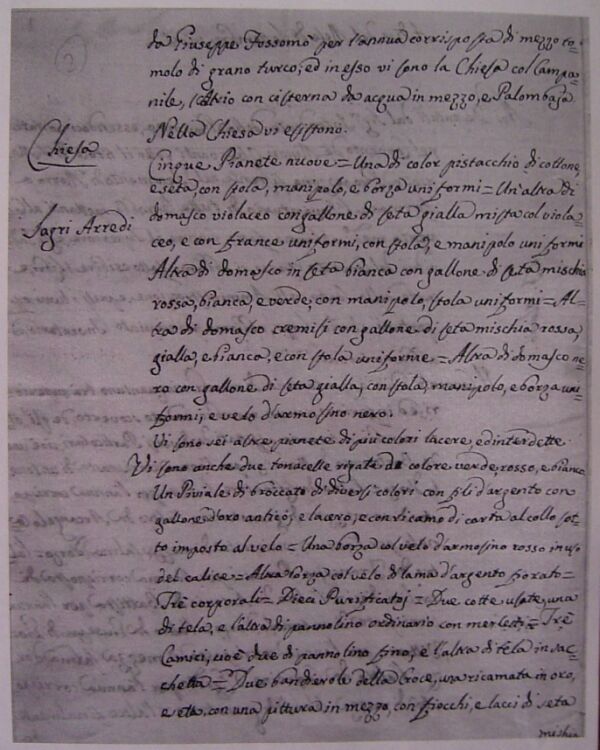 da Giuseppe Fossomò per l'annua corrisposta di mezzo to=
molo di grano turco; ed in esso vi sono la Chiesa col Campa=
nile, l'Atrio con cisterna da acqua in mezzo, e Palombaja
Nella Chiesa vi esistono.
Chiesa
Cinque Pianete nuove = Una di color pistacchio di cottone,
e seta, con stola, manipolo, e borza uniformi = Un'altra di
Sagri Arredi
domasco violaceo con gallone di seta gialla mista col viola=
ceo, e con france uniformi, con stola, e manipolo uniformi
Altra di domasco in seta bianca con gallone di seta mischia
rossa, bianca, e verde, con manipolo, stola uniformi = Al=
tra di domasco cremisi con gallone di seta mischia rossa,
gialla, e bianca, e con stola uniforme = Altra di domasco ne=
ro con gallone di seta gialla, con stola, manipolo, e borza uni=
formi, e velo d'armosino nero.
Vi sono sei altre pianete di più colori lacere, ed interdette.
Vi sono anche due tonacelle rigate di colore verde, rosso, e bianco
Un Piviale di broccato di diversi colori con fili d'argento con
gallone d'oro antico, e lacero, e con ricamo di carta al collo sot=
to imposto al velo = Una borza col velo d'armosino rosso in uso
del calice = Altra borza col velo di lama d'argento fiorato =
Trè corporali = Dieci Purificatoj = Due cotte usate, una
di tela, e l'altra di pannolino ordinario con merletti = Trè
Camici, cioè due di pannolino fino, e l'altra di tela in sac=
chetta = Due bandierole della Croce, una ricamata in oro,
e seta, con una pittura in mezzo, con fiocchi, e lacci di seta
mischia